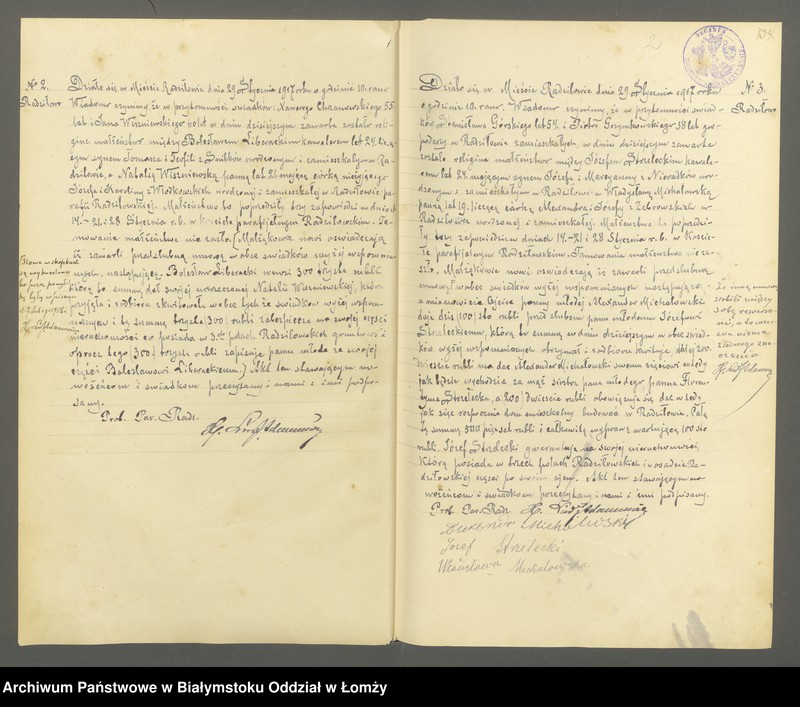 1
Nº 2.
Radziłowo
Działo się w Mieście Radziłowie dnia 29 Stycznia 1917 roku o godzinie 10. rano.
Wiadomo czynimy, że w przytomności świadków: Ksawerego Chrzanowskiego 55
lat i Jana Wiszniewskiego 60 lat w dniu dzisiejszym zawarte zostało reli-
gijne małżeństwo między Bolesławem Libereckim kawalerem lat 24
synem Tomasza i Teofili z urodzonym i zamieszkałym w Ra-
dziłowie, a Natalią Wiszniewską panną lat 21 mającą córką nieżyjącego
Józefa i Karoliny z Włodkowskich urodzoną i zamieszkałą w Radziłowie pa-
rafii Radziłowskiej. Małżeństwo to poprzedziły trzy zapowiedzi w dniach
14.-21 i 28 Stycznia r.b. w kościele parafijalnym Radziłowskim. Ta-
mowanie małżeństwa nie zaszło. Małżonkowie nowi oświadczają
iż zawarli przedślubną umowę w obec świadków wyżej wspomnia-
nych, następującą: Bolesław Liberecki wnosi 300 trzysta rubli
którą to sumę dał swojej narzeczonej Natalii Wiszniewskiej, która
przyjęła i z odbioru skwitowała wobec tych że świadków wyżej wspom-
nianych i tę sumę trzysta (300) rubli zabezpiecza na swojej części
nieruchomości co posiada w 3ech polach Radziłowskich gruntowych
oprócz tego (300) trzysta rubli zapisuje panna młoda ze swojej
części Bolesławowi Libereckiemu. Akt ten stawającym no-
wożeńcom i świadkom przeczytany i nami i imi podpi-
sany.
Prob. Par. Radz.
Słowa w skopkach
są wykreślone
bo
były w
2 lutego 1918 r.
2
Nº 3.
Radziłowo
Działo się w Mieście Radziłowie dnia 29 Stycznia 1917 roku
o godzinie 10. rano. Wiadomo czynimy, że w przytomności świad-
ków Stanisława Górskiego lat 54 i Piotra 38 lat gos-
podarzy w Radziłowie zamieszkałych, w dniu dzisiejszym zawarte
zostało religijne małżeństwo między Józefem Strzeleckim kawale-
rem lat 24 mającym synem Józefa i Maryanny z uro-
dzonym i zamieszkałym w Radziłowie a Władysławą Michałowską
panną lat 19 liczącą córką Alexandra i Józefy z Zebrowskich w
Radziłowie urodzoną i zamieszkałą. Małżeństwo to poprzedzi-
ły trzy zapowiedzi w dniach 14.-21 i 28 Stycznia r.b. w Koście-
le parafijalnym Radziłowskim. Tamowanie małżeństwa nie za-
szło. Małżonkowie nowi oświadczają iż zawarli przedślubną
umowę wobec świadków wyżej wspomnianych następującą:
a mianowicie Ojciec panny młodej Alexander Michałowski
daje dziś (100) sto rubli przed ślubem panu młodemu Józefowi
Strzeleckiemu, którą to sumę w dniu dzisiejszym w obec świad-
ków wyżej wspomnianych otrzymał i z odbioru kwituje, dalej 200
dwieście rubli ma dać Alexander Michałowski swemu zięciowi wtedy
jak będzie wychodzić za mąż siostra pana młodego panna Floren-
tyna Strzelecka, a 200 dwieście rubli obowiązuje się dać wtedy
jak zięć rozpocznie dom mieszkalny budować w Radziłowie. Całą
tę sumę 500 pięćset rubli i całkowitą wyprawę wartującą 100 sto
rubli. Józef Strzelecki gwarantuje na swojej nieruchomości,
którą posiada w trzech polach Radziłowskich i w osadzie Ra-
dziłowskiej części po swoim ojcu. Akt ten stawającym no-
wożeńcom i świadkom przeczytany i nami i imi podpisany.
Prob. Par. Radz.
Michałowski
Józef Strzelecki
Władysława Michałowska
Za inną umowę
zrobili między
sobą
a ta umo-
wa niema
żadnego zna-
czenia
Archiwum Państwowe w Białymstoku Oddział w Łomży